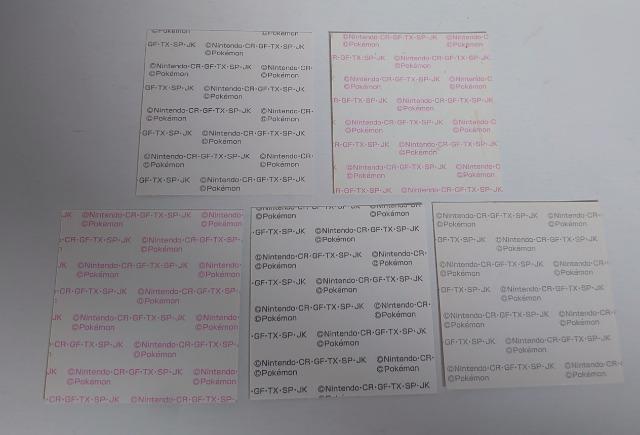 ©Nintendo·CR·GF·TX·SP·JK
©Pokémon
GF·TX·SP·JK ©Nintendo·CR·GF·TX·SP·JK
©Pokémon
©Nintendo·CR·GF·TX·SP·JK ©Nintendo·CR·
©Pokémon ©Pokémon
GF·TX·SP·JK ©Nintendo·CR·GF·TX·SP·JK
©Pokémon
©Nintendo·CR·GF·TX·SP·JK ©Nintendo·CR·
©Pokémon ©Pokémon
·GF·TX·SP·JK ©Nintendo·CR·GF·TX·SP·JK
©Pokémon
©Nintendo·CR·GF·TX·SP·JK ©Nintendo·CR·
©Pokémon ©Pokémon
·GF·TX·SP·JK ©Nintendo·CR·GF·TX·SP·JK
©Pokémon
©Nintendo·CR·GF·TX·SP·JK ©Nintendo·C
©Pokémon ©Pokémon
R·GF·TX·SP·JK ©Nintendo·CR·GF·TX·SP·JK
©Pokémon
©Nintendo·CR·GF·TX·SP·JK ©Nintendo·C
©Pokémon ©Pokémon
R·GF·TX·SP·JK ©Nintendo·CR·GF·TX·SP·JK
©Pokémon
©Nintendo·CR·GF·TX·SP·JK ©Nintendo·C
©Pokémon ©Pokémon
R·GF·TX·SP·JK ©Nintendo·CR·GF·TX·SP·JK
©Pokémon
©Nintendo·CR·GF·TX·SP·JK ©Nintendo·C
©Pokémon ©Pokémon
R·GF·TX·SP·JK ©Nintendo·CR·GF·TX·SP·JK
JK ©Nintendo·CR·GF·TX·SP·JK ©Nintendo·
©Pokémon ©Pokémon
·CR·GF·TX·SP·JK ©Nintendo·CR·GF·TX·SP·JK
©Pokémon
JK ©Nintendo·CR·GF·TX·SP·JK ©Nintendo·
©Pokémon ©Pokémon
·CR·GF·TX·SP·JK ©Nintendo·CR·GF·TX·SP·JK
©Pokémon
JK ©Nintendo·CR·GF·TX·SP·JK ©Nintendo·
©Pokémon ©Pokémon
·CR·GF·TX·SP·JK ©Nintendo·CR·GF·TX·SP·JK
©Pokémon
JK ©Nintendo·CR·GF·TX·SP·JK ©Nintendo·
©Pokémon ©Pokémon
·CR·GF·TX·SP·JK ©Nintendo·CR·GF·TX·SP·JK
©Pokémon ©Pokémon
·GF·TX·SP·JK ©Nintendo·CR·GF·TX·SP·JK
©Pokémon
©Nintendo·CR·GF·TX·SP·JK ©Nintendo·CR·
©Pokémon ©Pokémon
·GF·TX·SP·JK ©Nintendo·CR·GF·TX·SP·JK
©Pokémon
©Nintendo·CR·GF·TX·SP·JK ©Nintendo·CR·
©Pokémon ©Pokémon
·GF·TX·SP·JK ©Nintendo·CR·GF·TX·SP·JK
©Pokémon
©Nintendo·CR·GF·TX·SP·JK ©Nintendo·CR·
©Pokémon ©Pokémon
·GF·TX·SP·JK ©Nintendo·CR·GF·TX·SP·JK
©Nintendo·CR·GF·TX·SP·JK ©Nintendo·CR·
©Pokémon ©Pokémon
GF·TX·SP·JK ©Nintendo·CR·GF·TX·SP·JK
©Pokémon
©Nintendo·CR·GF·TX·SP·JK ©Nintendo·CR·
©Pokémon ©Pokémon
GF·TX·SP·JK ©Nintendo·CR·GF·TX·SP·JK
©Pokémon
©Nintendo·CR·GF·TX·SP·JK ©Nintendo·CR·
©Pokémon ©Pokémon
GF·TX·SP·JK ©Nintendo·CR·GF·TX·SP·JK
©Pokémon
©Nintendo·CR·GF·TX·SP·JK ©Nintendo·CR·
©Pokémon ©Pokémon